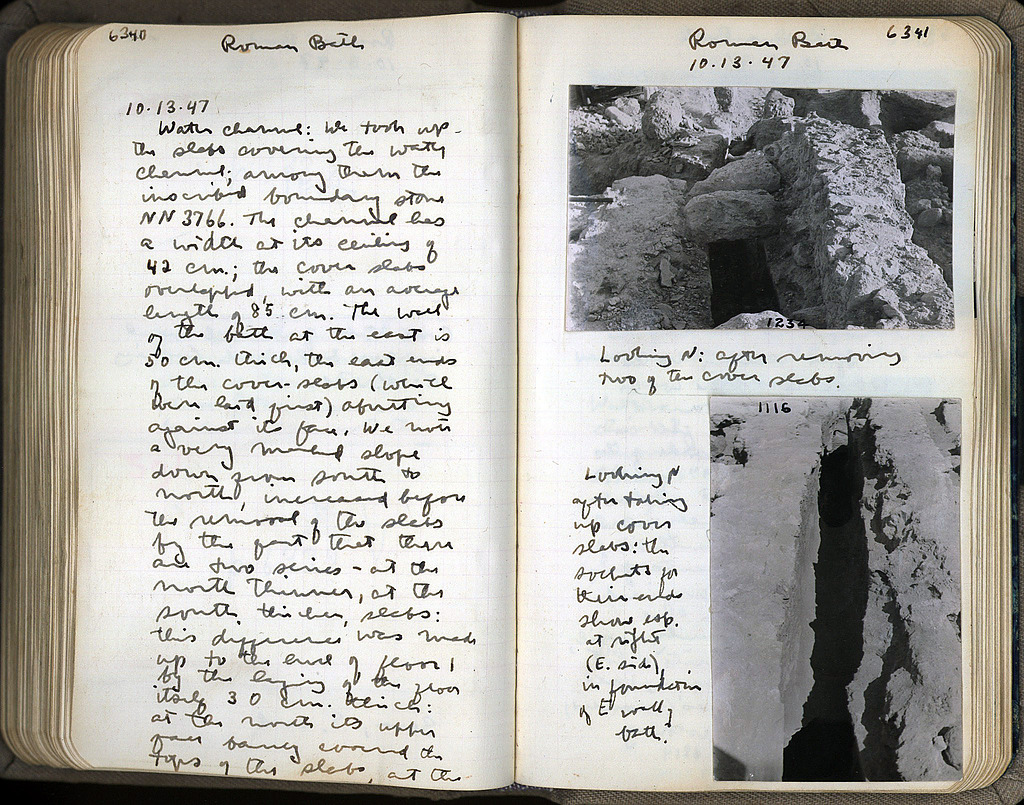 6340
Roman Bath
10.13.47
Water channel: We took up
the slabs covering the water
channel; among them the
inscribed boundary stone
NN 3766. The channel has
a width at its ceiling of
42 cm.; the cover slabs
overlapped, with an average
length of 85 cm. The wall
of the bath at the east is
50 cm. thick, the east ends
of the cover-slabs (which
were laid first) abutting
against its face. We note
a very marked slope
down from south to
north, increased before
the removal of the slabs
by the fact that there
are two series - at the
north thinner, at the
south, thicker, slabs:
this difference was made
up to the level of floor 1
by the laying of the floor
itself 30 cm. thick:
at the north its upper
face barely covered the
tops of the slabs, at the
Roman Bath
6341
10.13.47
1234
Looking N: after removing
two of the cover slabs.
1116
Looking N
after taking
up cover
slabs: the
sockets for
their ends
show esp.
at right
(E. side),
in foundation
of E wall of
bath.